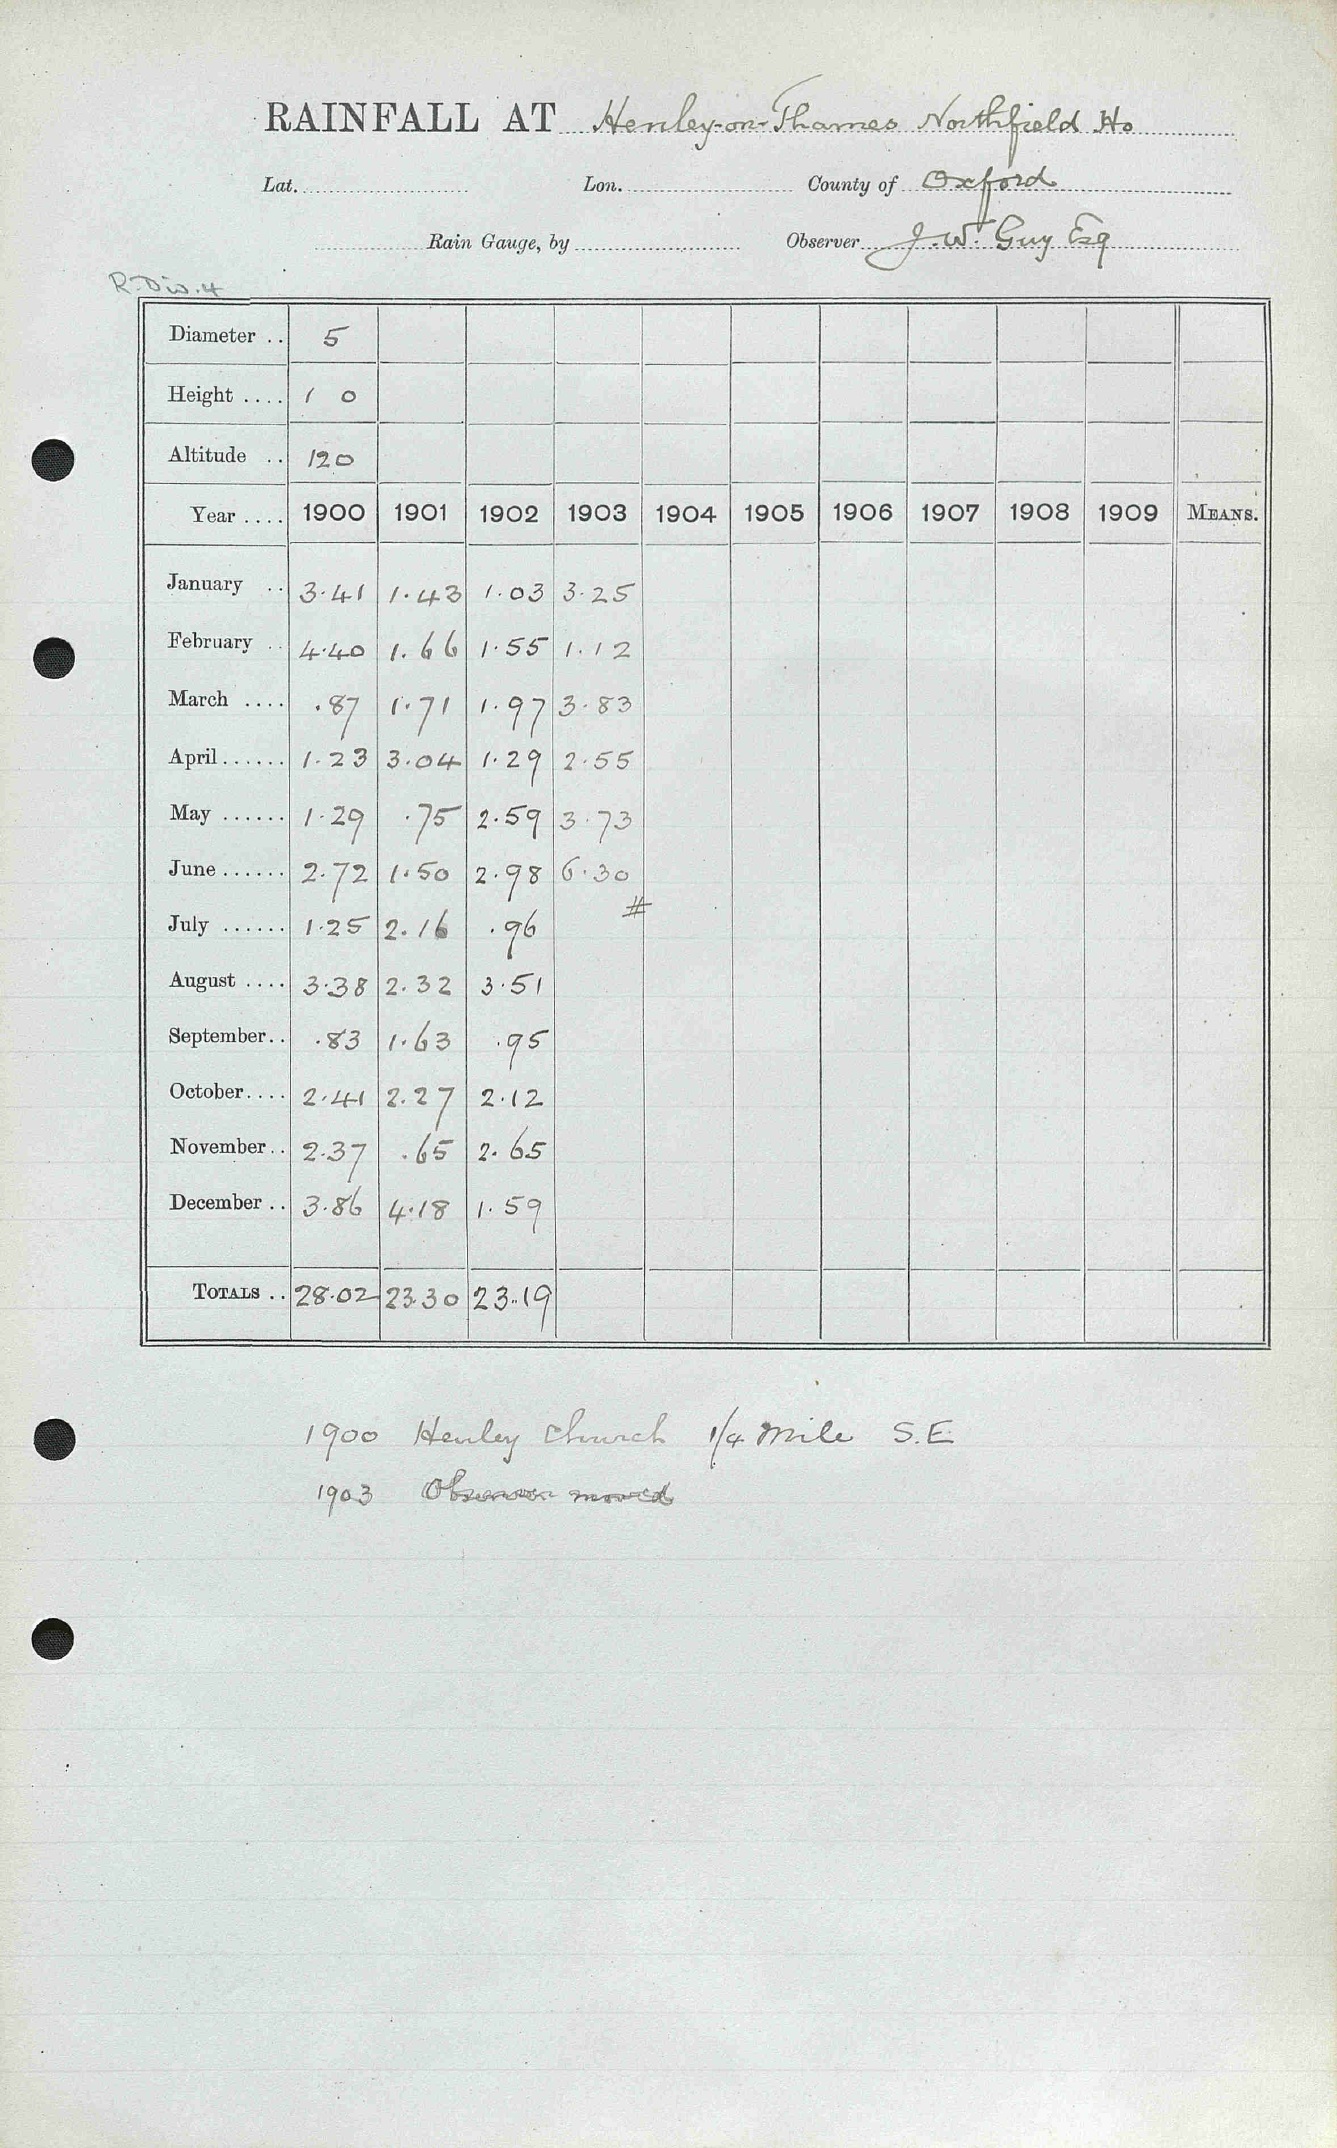 RAINFALL AT Henley-on-Thames Northfield Ho
Lat. Lon. County of Oxford
Rain Gauge, by Observer J. W. Guy Esq
R. Div. 4
Diameter .. 5
Height .... 1 0
Altitude .. 120
Year .... 1900 1901 1902 1903 1904 1905 1906 1907 1908 1909 MEANS.
January .. 3.41 1.43 1.03 3.25
February .. 4.40 1.66 1.55 1.12
March .... .87 1.71 1.97 3.83
April...... 1.23 3.04 1.29 2.55
May ...... 1.29 .75 2.59 3.73
June...... 2.72 1.50 2.98 6.30
#
July ...... 1.25 2.16 .96
August .... 3.38 2.32 3.51
September.. .83 1.63 .95
October.... 2.41 2.27 2.12
November.. 2.37 .65 2.65
December .. 3.86 4.18 1.59
TOTALS .. 28.02 23.30 23.19
1900 Henley Church 1/4 Mile S.E
1903 Observer moved